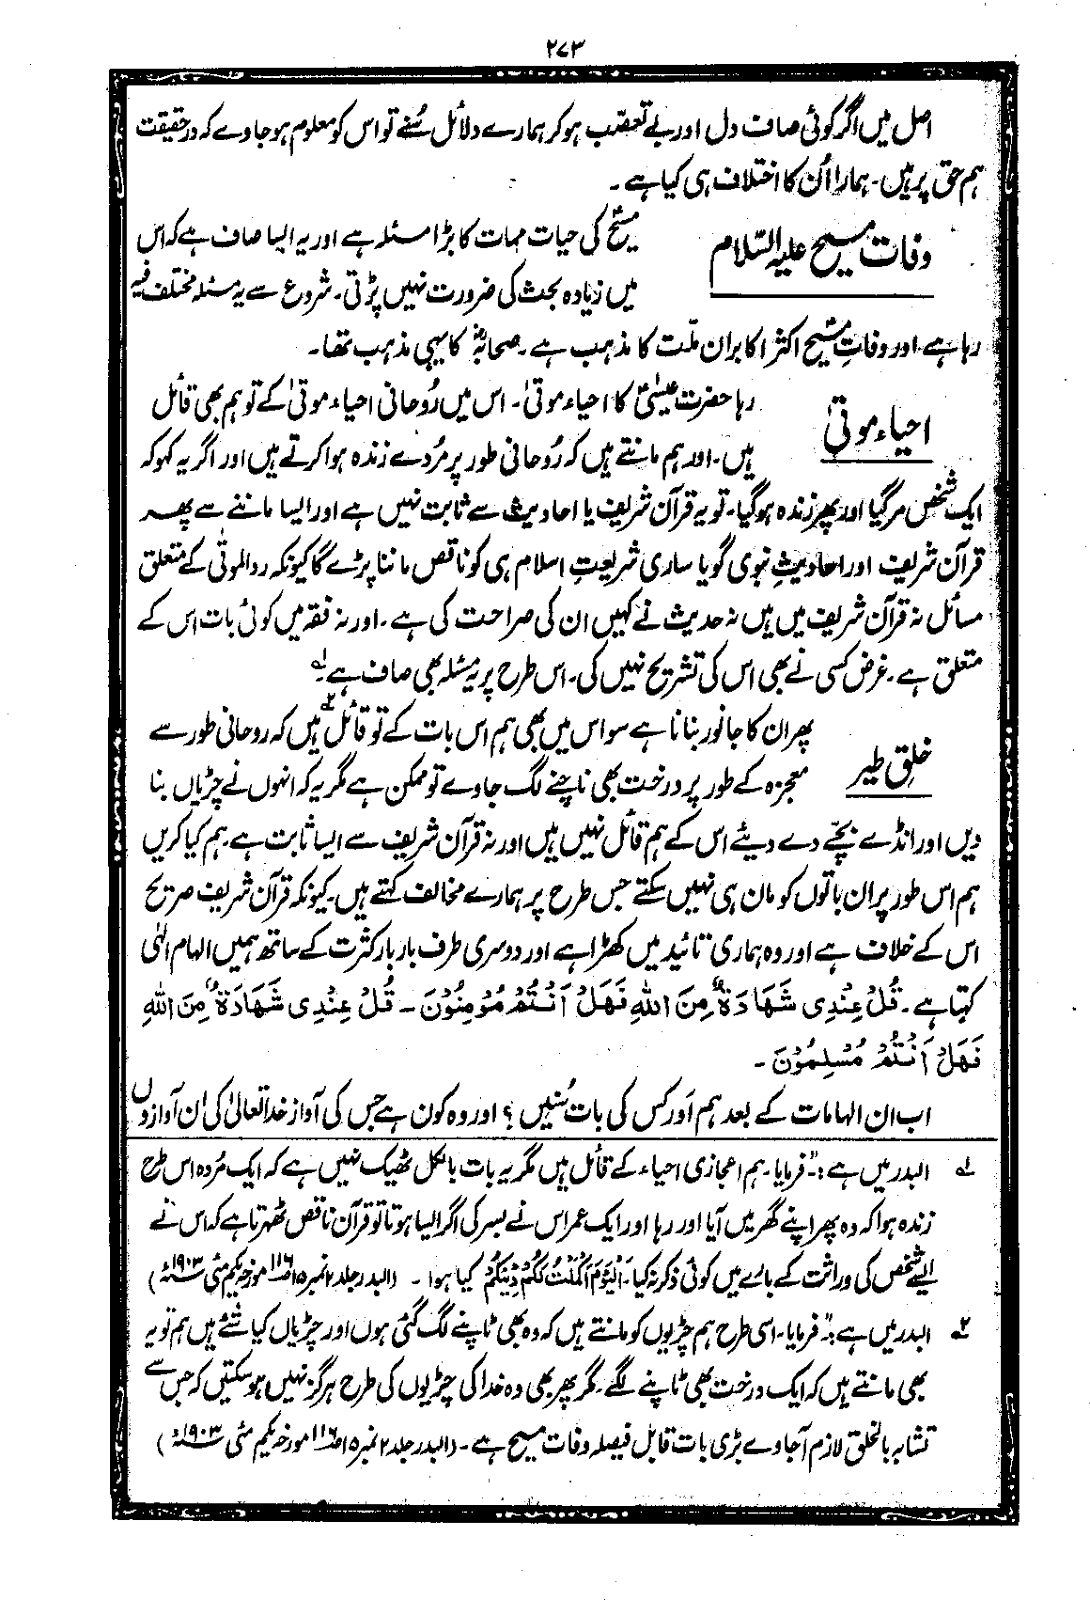 ۲۷۳
اصل میں اگر کوئی صاف دل اور بے تعصّب ہو کر ہمارے دلائل سُنے تو اس کو معلوم ہو جاوے کہ درحقیقت
ہم حق پر ہیں۔ ہمارا اُن کا اختلاف ہی کیا ہے۔
وفات مسیح علیہ السّلام
مسیحؑ کی حیات ممات کا بڑا مسئلہ ہے اور یہ ایسا صاف ہے کہ اس
میں زیادہ بحث کی ضرورت نہیں پڑتی۔ شروع سے یہ مسئلہ مختلف فیہ
رہا ہے اور وفاتِ مسیحؑ اکثر اکابرانِ ملّت کا مذہب ہے۔ صحابہؓ کا یہی مذہب تھا۔
احیاء موتیٰ
رہا حضرت عیسیٰؑ کا احیاء موتیٰ۔ اس میں رُوحانی احیاء موتیٰ کے تو ہم بھی قائل
ہیں۔ اور ہم مانتے ہیں کہ رُوحانی طور پر مُردے زندہ ہوا کرتے ہیں اور اگر یہ کہو کہ
ایک شخص مر گیا اور پھر زندہ ہو گیا۔ تو یہ قرآن شریف یا احادیث سے ثابت نہیں ہے اور ایسا ماننے سے پھر
قرآن شریف اور احادیثِ نبوی گویا ساری شریعتِ اسلام ہی کو ناقص ماننا پڑے گا کیونکہ ردالموتٰی کے متعلق
مسائل نہ قرآن شریف میں ہیں نہ حدیث نے کہیں ان کی صراحت کی ہے۔ اور نہ فقہ میں کوئی بات اس کے
متعلق ہے۔ غرض کسی نے بھی اس کی تشریح نہیں کی۔ اس طرح پر یہ مسئلہ بھی صاف ہے۔ ۱؎
خلقِ طیر
پھر ان کا جانور بنانا ہے سو اس میں بھی ہم اس بات کے تو قائل ۲؎ ہیں کہ روحانی طور سے
معجزہ کے طور پر درخت بھی ناچنے لگ جاوے تو ممکن ہے مگر یہ کہ انہوں نے چڑیاں بنا
دیں اور انڈے بچّے دے دیئے اس کے ہم قائل نہیں ہیں اور نہ قرآن شریف سے ایسا ثابت ہے۔ ہم کیا کریں
ہم اس طور پر ان باتوں کو مان ہی نہیں سکتے جس طرح پر ہمارے مخالف کہتے ہیں۔ کیونکہ قرآن شریف صریح
اس کے خلاف ہے اور وہ ہماری تائید میں کھڑا ہے اور دوسری طرف بار بار کثرت کے ساتھ ہمیں الہامِ الٰہی
کہتا ہے۔ قُلْ عِنْدِی شَهَادَةٌ مِنَ اللهِ فَهَلْ اَنْتُمْ مُؤْمِنُوْنَ ۔ قُلْ عِنْدِی شَهَادَةٌ مِنَ اللهِ
فَهَلْ اَنْتُمْ مُسْلِمُوْنَ ۔
اب ان الہامات کے بعد ہم اَور کس کی بات سُنیں ؟ اور وہ کون ہے جس کی آواز خدا تعالیٰ کی ان آوازوں
۱؎ البدر میں ہے :۔ "فرمایا۔ ہم اعجازی احیاء کے قائل ہیں مگر یہ بات بالکل ٹھیک نہیں ہے کہ ایک مُردہ اس طرح
زندہ ہوا کہ وہ پھر اپنے گھر میں آیا اور رہا اور ایک عمر اس نے بسر کی اگر ایسا ہوتا تو قرآن ناقص ٹھہرتا ہے کہ اس نے
ایسے شخص کی وراثت کے بارے میں کوئی ذکر نہ کیا۔ اَلْیَوْمَ اَکْمَلْتُ لَکُمْ دِیْنَکُمْ کیا ہوا ۔ (البدر جلد ۲ نمبر ۱۵ صفحہ ۱۱۶ مورخہ یکم مئی ۱۹۰۳ء)
۲؎ البدر میں ہے :۔ "فرمایا۔ اسی طرح ہم چڑیوں کو مانتے ہیں کہ وہ بھی ناچنے لگ گئی ہوں اور چڑیاں کیا شئے ہیں ہم تو یہ
بھی مانتے ہیں کہ ایک درخت بھی ناچنے لگے۔ مگر پھر بھی وہ خدا کی چڑیوں کی طرح ہرگز نہیں ہو سکتیں کہ جس سے
تشابہ بالخلق لازم آ جاوے بڑی بات قابلِ فیصلہ وفات مسیح ہے۔ (البدر جلد ۲ نمبر ۱۵ صفحہ ۱۱۶ مورخہ یکم مئی ۱۹۰۳ء)